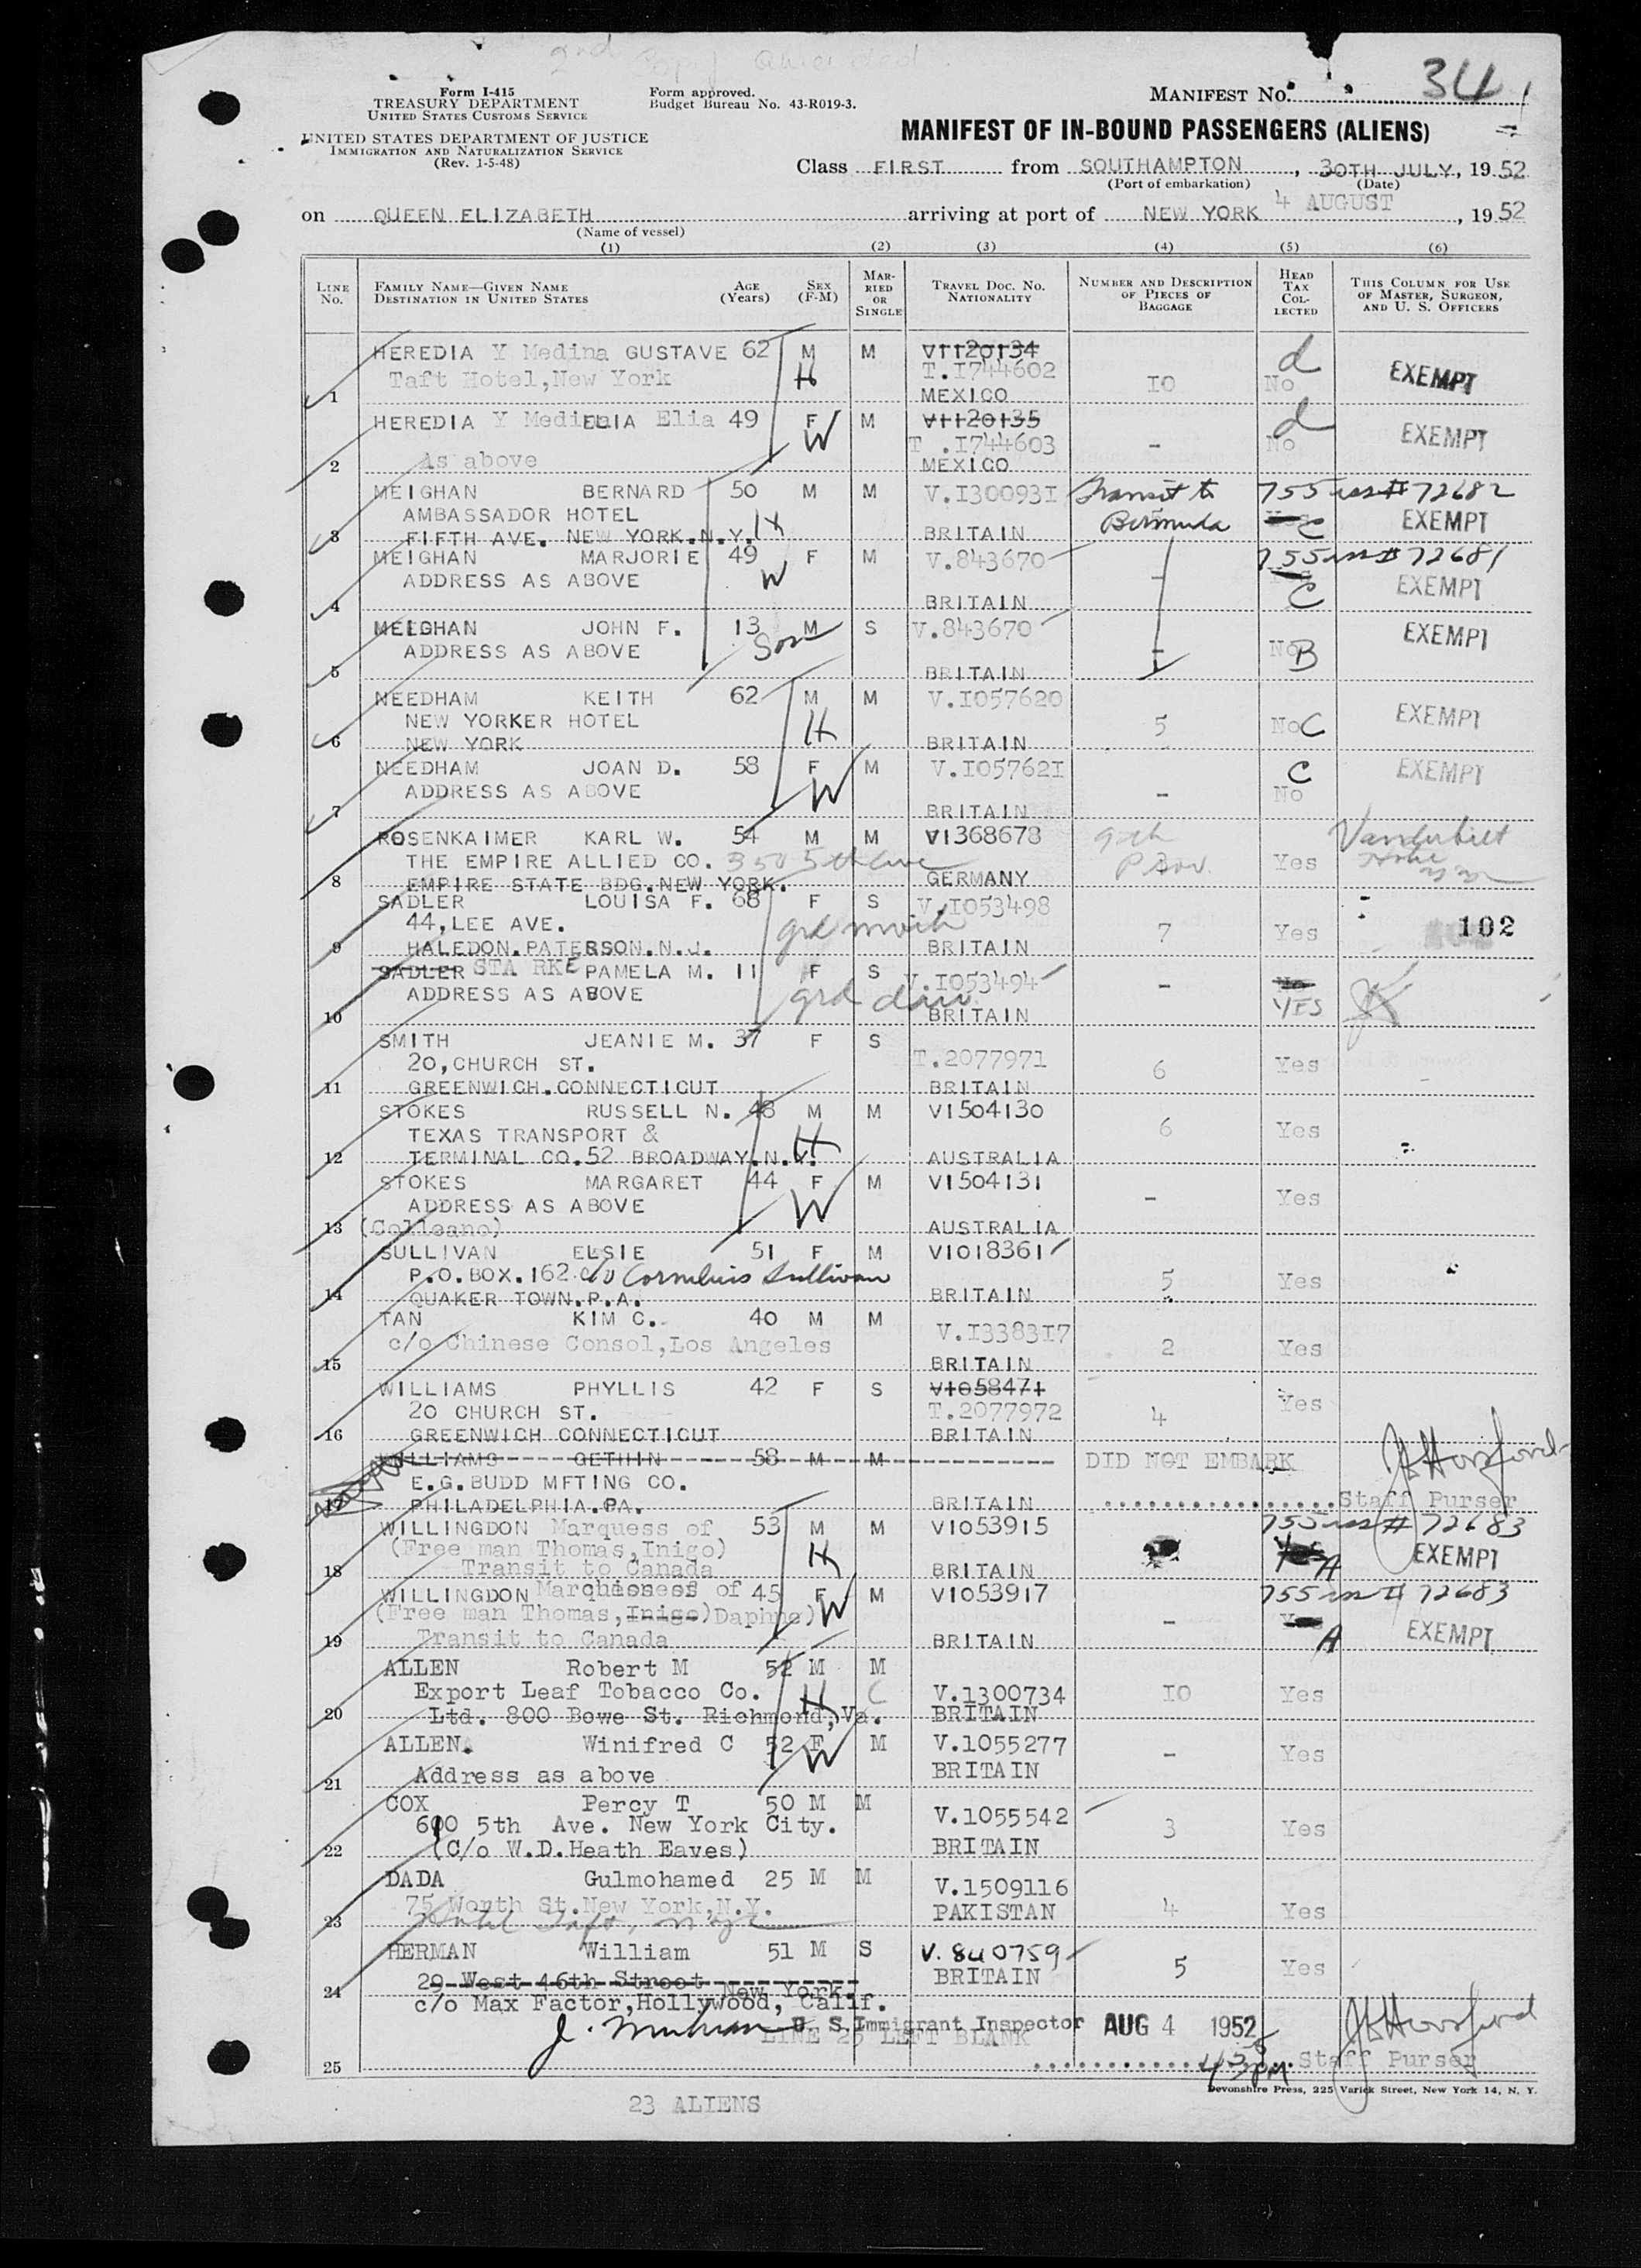 2nd Copy Amended
Form I-415
TREASURY DEPARTMENT
UNITED STATES CUSTOMS SERVICE
UNITED STATES DEPARTMENT OF JUSTICE
IMMIGRATION AND NATURALIZATION SERVICE
(Rev. 1-5-48)
Form approved.
Budget Bureau No. 43-R019-3.
MANIFEST NO. 34
MANIFEST OF IN-BOUND PASSENGERS (ALIENS)
Class FIRST from SOUTHAMPTON, 30TH JULY, 1952
(Port of embarkation) (Date)
on QUEEN ELIZABETH arriving at port of NEW YORK 4 AUGUST, 1952
(Name of vessel)
(1) (2) (3) (4) (5) (6)
LINE NO. FAMILY NAME—GIVEN NAME DESTINATION IN UNITED STATES AGE (Years) SEX (F-M) MARRIED OR SINGLE TRAVEL DOC. NO. NATIONALITY NUMBER AND DESCRIPTION OF PIECES OF BAGGAGE HEAD TAX COLLECTED THIS COLUMN FOR USE OF MASTER, SURGEON, AND U. S. OFFICERS
HEREDIA Y Medina GUSTAVE 62 M M V1120134 d
Taft Hotel,New York H T.I744602 IO No EXEMPT
1 MEXICO
HEREDIA Y Medina ELIA Elia 49 F M V1120135 d
W T.I744603 - No EXEMPT
2 As above MEXICO
MEIGHAN BERNARD 50 M M V.I30093I Transit to 755 iss # 72682
AMBASSADOR HOTEL H Bermuda C EXEMPT
3 FIFTH AVE. NEW YORK.N.Y. BRITAIN
MEIGHAN MARJORIE 49 F M V.843670 755 iss # 72681
ADDRESS AS ABOVE W - C EXEMPT
4 BRITAIN
MEIGHAN JOHN F. 13 M S V.843670 EXEMPT
ADDRESS AS ABOVE Son - No B
5 BRITAIN
NEEDHAM KEITH 62 M M V.I057620
NEW YORKER HOTEL H 5 No C EXEMPT
6 NEW YORK BRITAIN
NEEDHAM JOAN D. 58 F M V.I05762I C EXEMPT
ADDRESS AS ABOVE W - No
7 BRITAIN
ROSENKAIMER KARL W. 54 M M V1368678 Vanderbilt
THE EMPIRE ALLIED CO. 350 5th Ave Yes
8 EMPIRE STATE BDG.NEW YORK. GERMANY
SADLER LOUISA F. 68 F S V.I053498
44,LEE AVE. grd moth 7 Yes 102
9 HALEDON.PATERSON.N.J. BRITAIN
SADLER STARKE PAMELA M. 11 F S V.I053494
ADDRESS AS ABOVE grd dau - YES
10 BRITAIN
SMITH JEANIE M. 37 F S
20,CHURCH ST. T.2077971 6 Yes
11 GREENWICH.CONNECTICUT BRITAIN
STOKES RUSSELL N. 48 M M V1504130
TEXAS TRANSPORT & H 6 Yes
12 TERMINAL CO.52 BROADWAY.N.Y. AUSTRALIA
STOKES MARGARET 44 F M V1504131
ADDRESS AS ABOVE W - Yes
13 (Colleano) AUSTRALIA
SULLIVAN ELSIE 51 F M V1018361
P.O.BOX.162 c/o Cornelius Sullivan 5 Yes
14 QUAKER TOWN.P.A. BRITAIN
TAN KIM C. 40 M M V.I3383I7
c/o Chinese Consol,Los Angeles 2 Yes
15 BRITAIN
WILLIAMS PHYLLIS 42 F S V1058471
20 CHURCH ST. T.2077972 4 Yes
16 GREENWICH CONNECTICUT BRITAIN
WILLIAMS GETHIN 58 M M DID NOT EMBARK
E.G.BUDD MFTING CO.
17 PHILADELPHIA.PA. BRITAIN Staff Purser
WILLINGDON Marquess of 53 M M V1053915 755 iss # 72683
(Free man Thomas,Inigo) H A EXEMPT
18 Transit to Canada BRITAIN
WILLINGDON Marchioness of 45 F M V1053917 755 iss # 72683
(Free man Thomas,Inigo)Daphne) W - A EXEMPT
19 Transit to Canada BRITAIN
ALLEN Robert M 52 M M
Export Leaf Tobacco Co. H C V.1300734 IO Yes
20 Ltd. 800 Bowe St. Richmond,Va. BRITAIN
ALLEN. Winifred C 52 F M V.1055277 - Yes
21 Address as above W BRITAIN
COX Percy T 50 M M V.1055542
600 5th Ave. New York City. 3 Yes
22 (C/o W.D.Heath Eaves) BRITAIN
DADA Gulmohamed 25 M M V.1509116
75 Worth St.New York,N.Y. PAKISTAN 4 Yes
23
HERMAN William 51 M S V. 840759
29 West 46th Street New York. BRITAIN 5 Yes
24 c/o Max Factor,Hollywood, Calif.
U. S. Immigrant Inspector AUG 4 1952
LINE 25 LEFT BLANK
25 Staff Purser
Devonshire Press, 225 Varick Street, New York 14, N. Y.
23 ALIENS